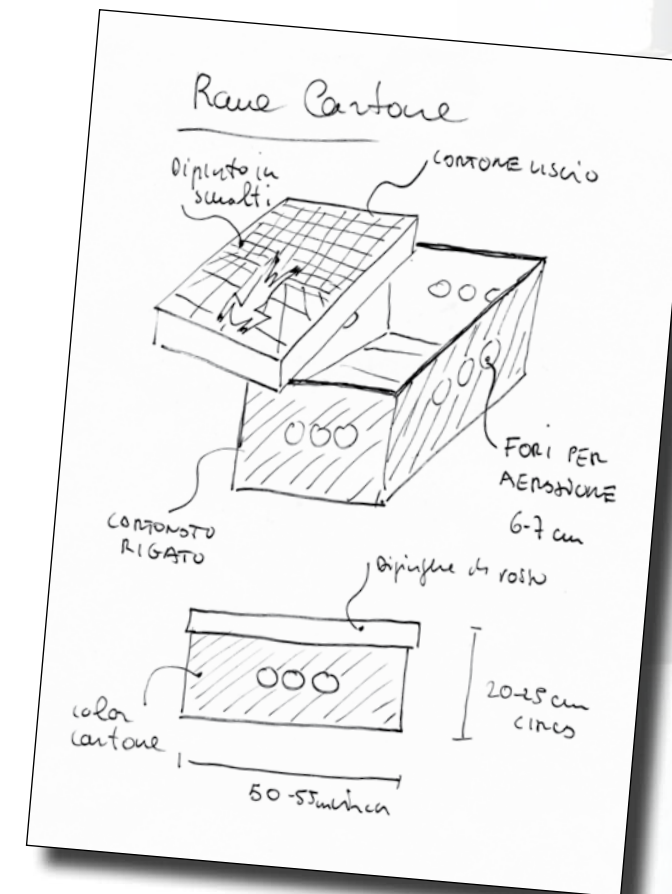 Rane Cartone
Dipinto in
smalti
CARTONE LISCIO
FORI PER
AERAZIONE
6-7 cm
CARTONATO
RIGATO
di rosso
color
cartone
20-25 cm
CIRCA
50-55 cm circa